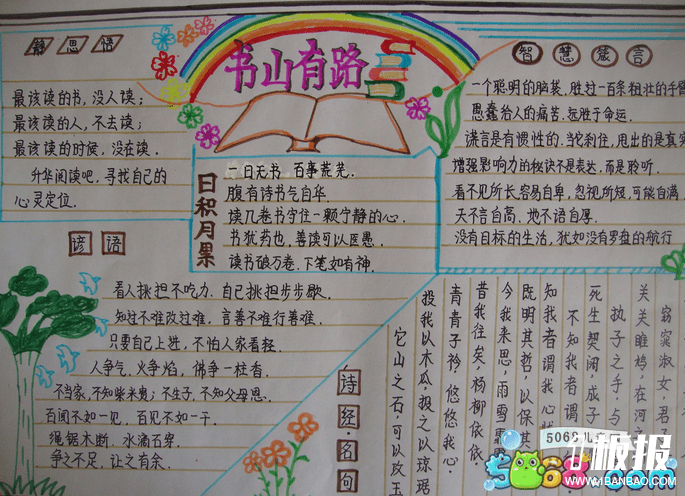 静思语
最该读的书，没人读；
最该读的人，不去读；
最该读的时候，没在读．
升华阅读吧，寻找自己的
心灵定位．
书山有路
智慧箴言
一个聪明的脑袋，胜过一百条粗壮的手臂
愚蠢给人的痛苦，远胜于命运．
谎言是有惯性的．当它刹住，甩出的是真实
增强影响力的秘诀不是表达，而是聆听．
看不见所长，容易自卑，忽视所短，可能自满
天不言自高，地不语自厚．
没有目标的生活，犹如没有罗盘的航行
日积月累
一日无书　百事荒芜．
腹有诗书气自华．
读几卷书守住一颗宁静的心．
书犹药也，善读可以医愚．
读书破万卷．下笔如有神．
谚语
看人挑担不吃力．自己挑担步步歇．
知过不难改过难，言善不难行善难．
只要自己上进，不怕人家看轻．
人争气，火争焰，佛争一柱香．
不当家，不知柴米贵；不生子，不知父母恩．
百闻不如一见，百见不如一干．
绳锯木断．水滴石穿．
争之不足，让之有余．
诗经·名句
窈窕淑女，君子
关关雎鸠，在河之
执子之手，与
死生契阔，成子
不知我者谓
知我者谓我心
既明其哲，以保其
今我来思，雨雪
昔我往矣，杨柳依依
青青子衿，悠悠我心．
投我以木瓜，投之以琼琚
它山之石，可以攻玉
5068儿
板报
www.41BANBAO.com
5068.com